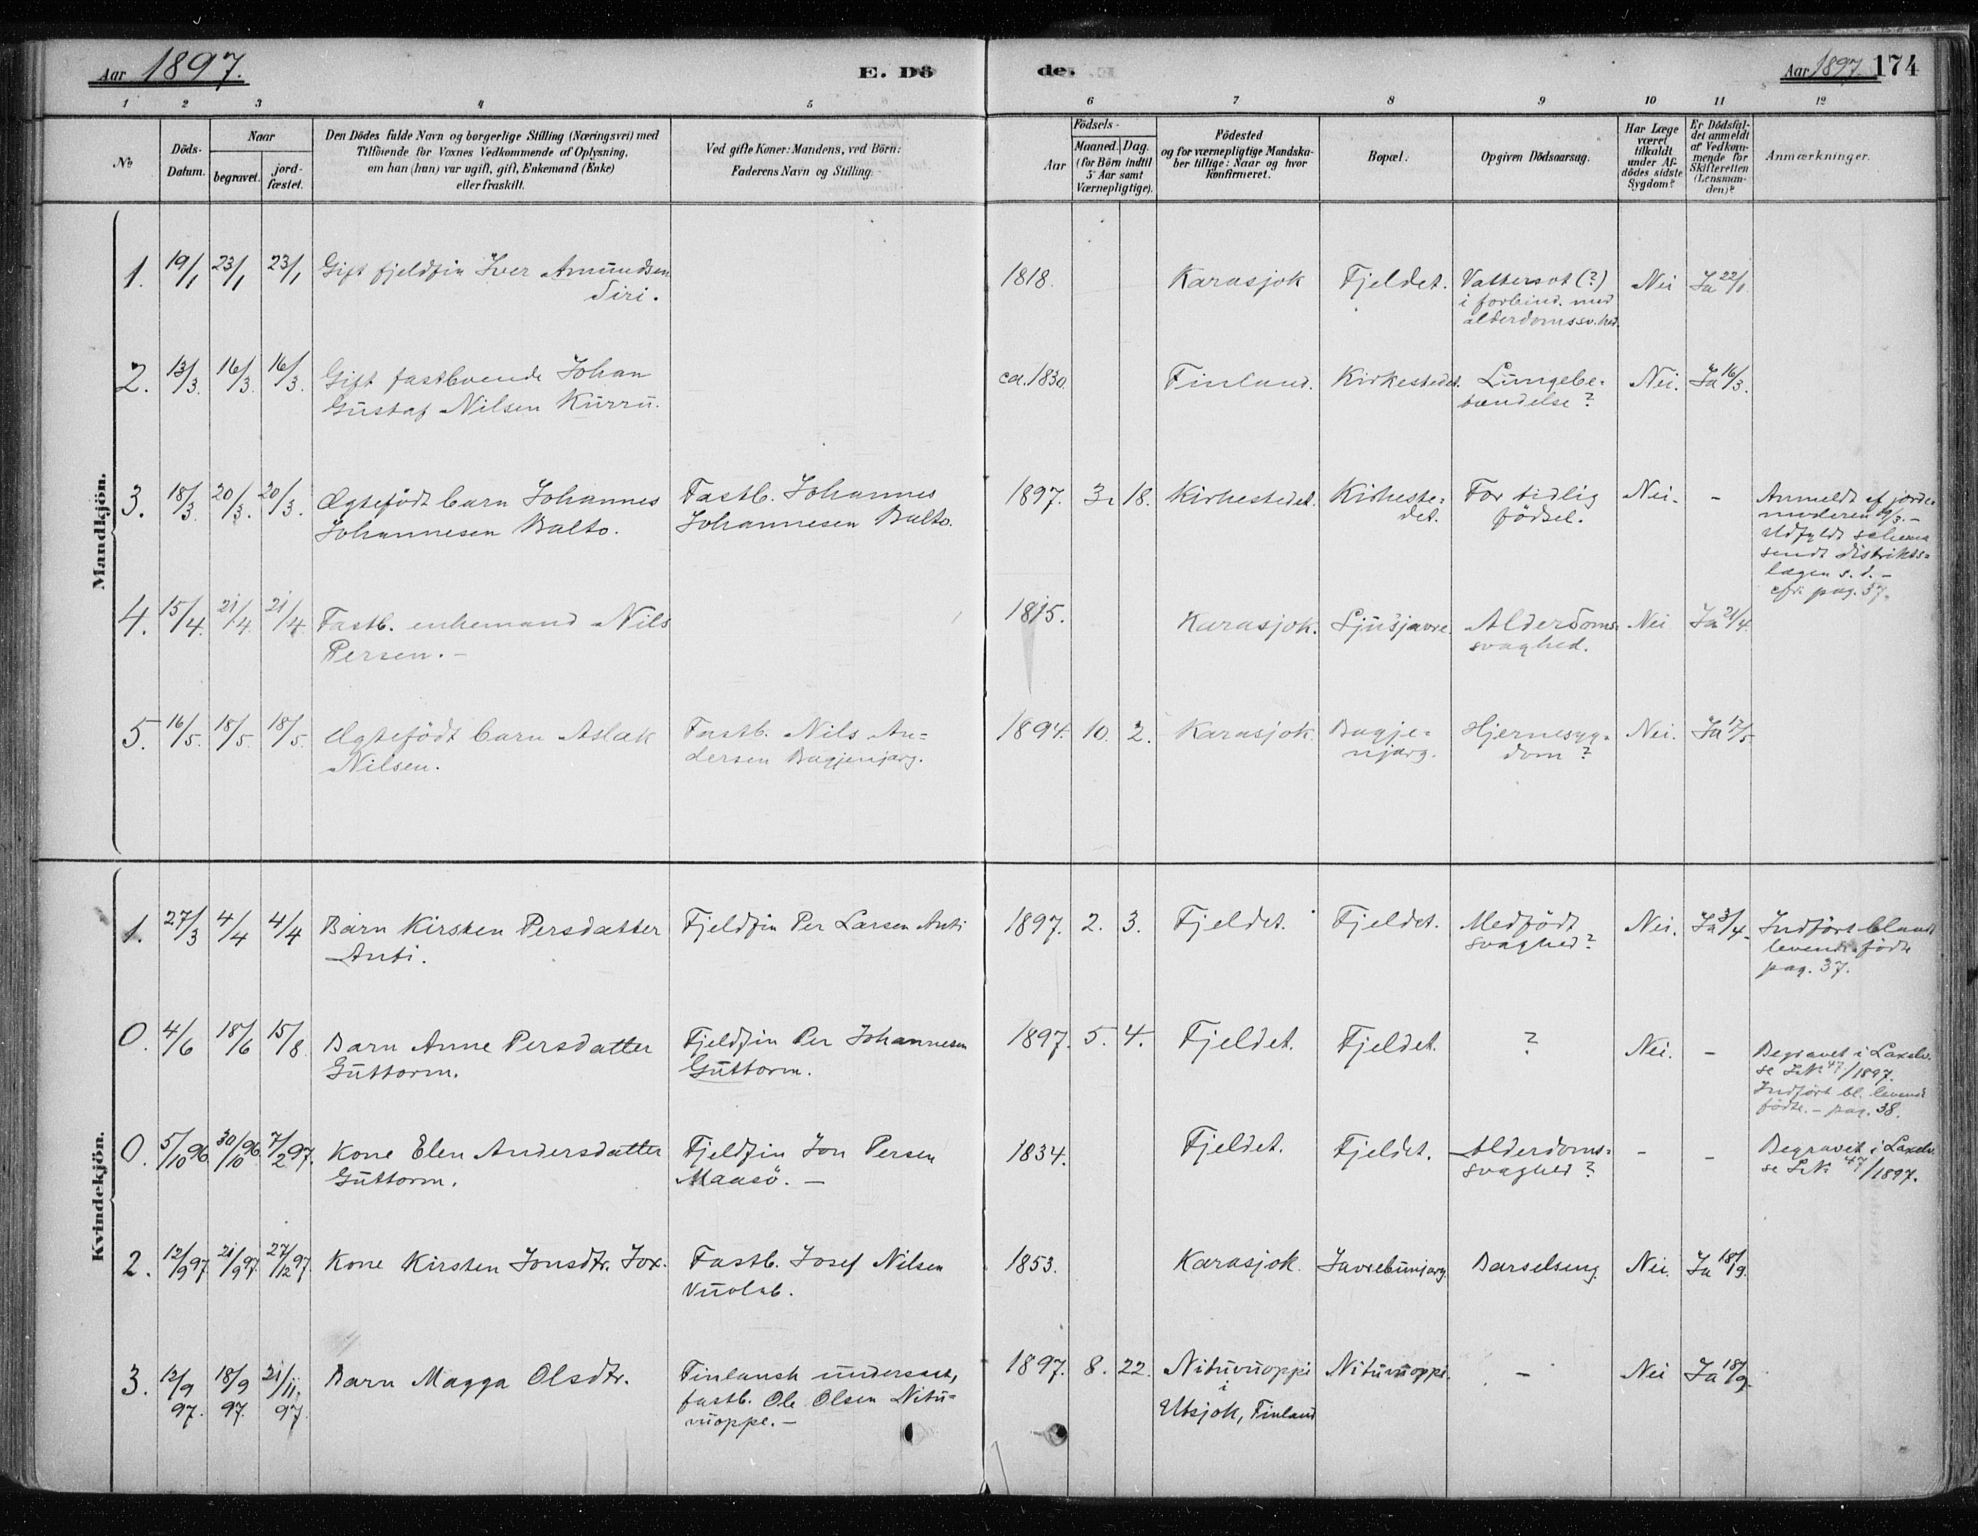 Aar 1897.
E. Dö
de.
Aar 1897. 174
1 2 3 4 5 6 7 8 9 10 11 12
No
Döds-
Datum.
Naar
begravet.
jord-
fæstet.
Den Dödes fulde Navn og borgerlige Stilling (Næringsvei) med
Tilföiende for Voxnes Vedkommende af Oplysning,
om han (hun) var ugift, gift, Enkemand (Enke)
eller fraskilt.
Ved gifte Koner: Mandens, ved Börn:
Faderens Navn og Stilling.
Födsels-
Aar
Maaned. Dag.
(for Börn indtil
5 Aar samt
Værnepligtige).
Födested
og for værnepligtige Mandska-
ber tillige: Naar og hvor
Konfirmeret.
Bopæl.
Opgiven Dödsaarsag.
Har Læge
været
tilkaldt
under Af-
dödes sidste
Sygdom?
Er Dödsfal-
det anmeldt
af Vedkom-
mende for
Skifteretten
(Lensman-
den)?
Anmærkninger.
Mandkjön.
1. 19/1 23/1 23/1 Gift fjeldfin Iver Amundsen
Siri.
1818. Karasjok Fjeldet. Vattersot (?)
i forbind. med
alderdomssv.hed.
Nei Ja 22/1.
2. 13/3. 16/3. 16/3. Gift fastboende Johan
Gustaf Nilsen Kurru.
ca. 1830. Finland. Kirkestedet. Lungebe-
tændelse?
Nei. Ja 16/3.
3. 18/3. 20/3. 20/3. Ægtefödt barn Johannes
Johannesen Balto.
Fastb. Johannes
Johannesen Balto.
1897. 3. 18. Kirkestedet. Kirkeste-
det.
For tidlig
födsel.
Nei. -
Anmeldt af jorde-
moderen
Udfyldt schema
sendt distrikts-
lægen s. d. -
cfr. pag. 37.
4. 15/4. 21/4. 21/4. Fastb. enkemand Nils
Persen. -
1815. Karasjok. Ljusjavre. Alderdoms-
svaghed.
Nei Ja 21/4.
5. 16/5. 18/5. 18/5. Ægtefödt barn Aslak
Nilsen.
Fastb. Nils An-
dersen Bagjenjarg.
1894. 10. 2. Karasjok. Bagje-
njarg.
Hjernesyg-
dom?
Nei. Ja 17/5
Kvindekjön.
1. 27/3 4/4 4/4 Barn Kirsten Persdatter
Anti.
Fjeldfin Per Larsen Anti
1897. 2. 3. Fjeldet. Fjeldet. Medfödt
svaghed?
Nei. Ja 3/4.
Indfört blandt
levende födte
pag. 37.
0. 4/6 18/6 15/8 Barn Anne Persdatter
Guttorm.
Fjeldfin Per Johannesen
Guttorm.
1897. 5. 4. Fjeldet. Fjeldet. ? Nei. -
Begravet i Laxelv.
se J.N. 47/1897.
Indfört bl. levende
födte. - pag. 38.
0. 5/10 96. 30/10 96 7/2 97. Kone Elen Andersdatter
Guttorm.
Fjeldfin Jon Persen
Maasö. -
1834. Fjeldet. Fjeldet. Alderdoms-
svaghed?
- -
Begravet i Laxelv.
se J.N. 47/1897.
2. 12/9 97 21/9 97 27/12 97. Kone Kirsten Jonsdtr. Jox.
Fastb. Josef Nilsen
Vuolab.
1853. Karasjok. Javrebunjarg. Barselseng. Nei. Ja 18/9.
3. 12/9 97. 18/9 97. 21/11. 97 Barn Magga Olsdtr.
Finlansk undersaat,
fastb. Ole Olsen Nitu-
vuoppe. -
1897. 8. 22. Nituvuoppi
i
Utsjok, Finland
Nituvuoppi. - Nei Ja 18/9.